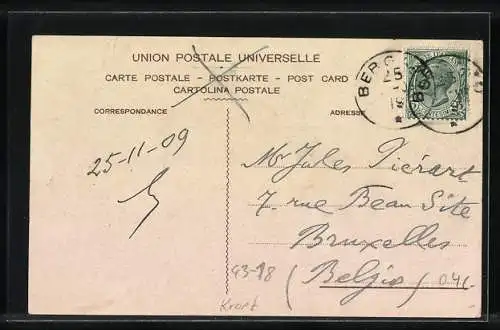 UNION POSTALE UNIVERSELLE
CARTE POSTALE - POSTKARTE - POST CARD
CARTOLINA POSTALE
CORRESPONDANCE
ADRESSE
BERG
25
25-11-09
Mr Jules Piérart
7 rue Beau Site
Bruxelles
(Belgio)
93-98
0.4